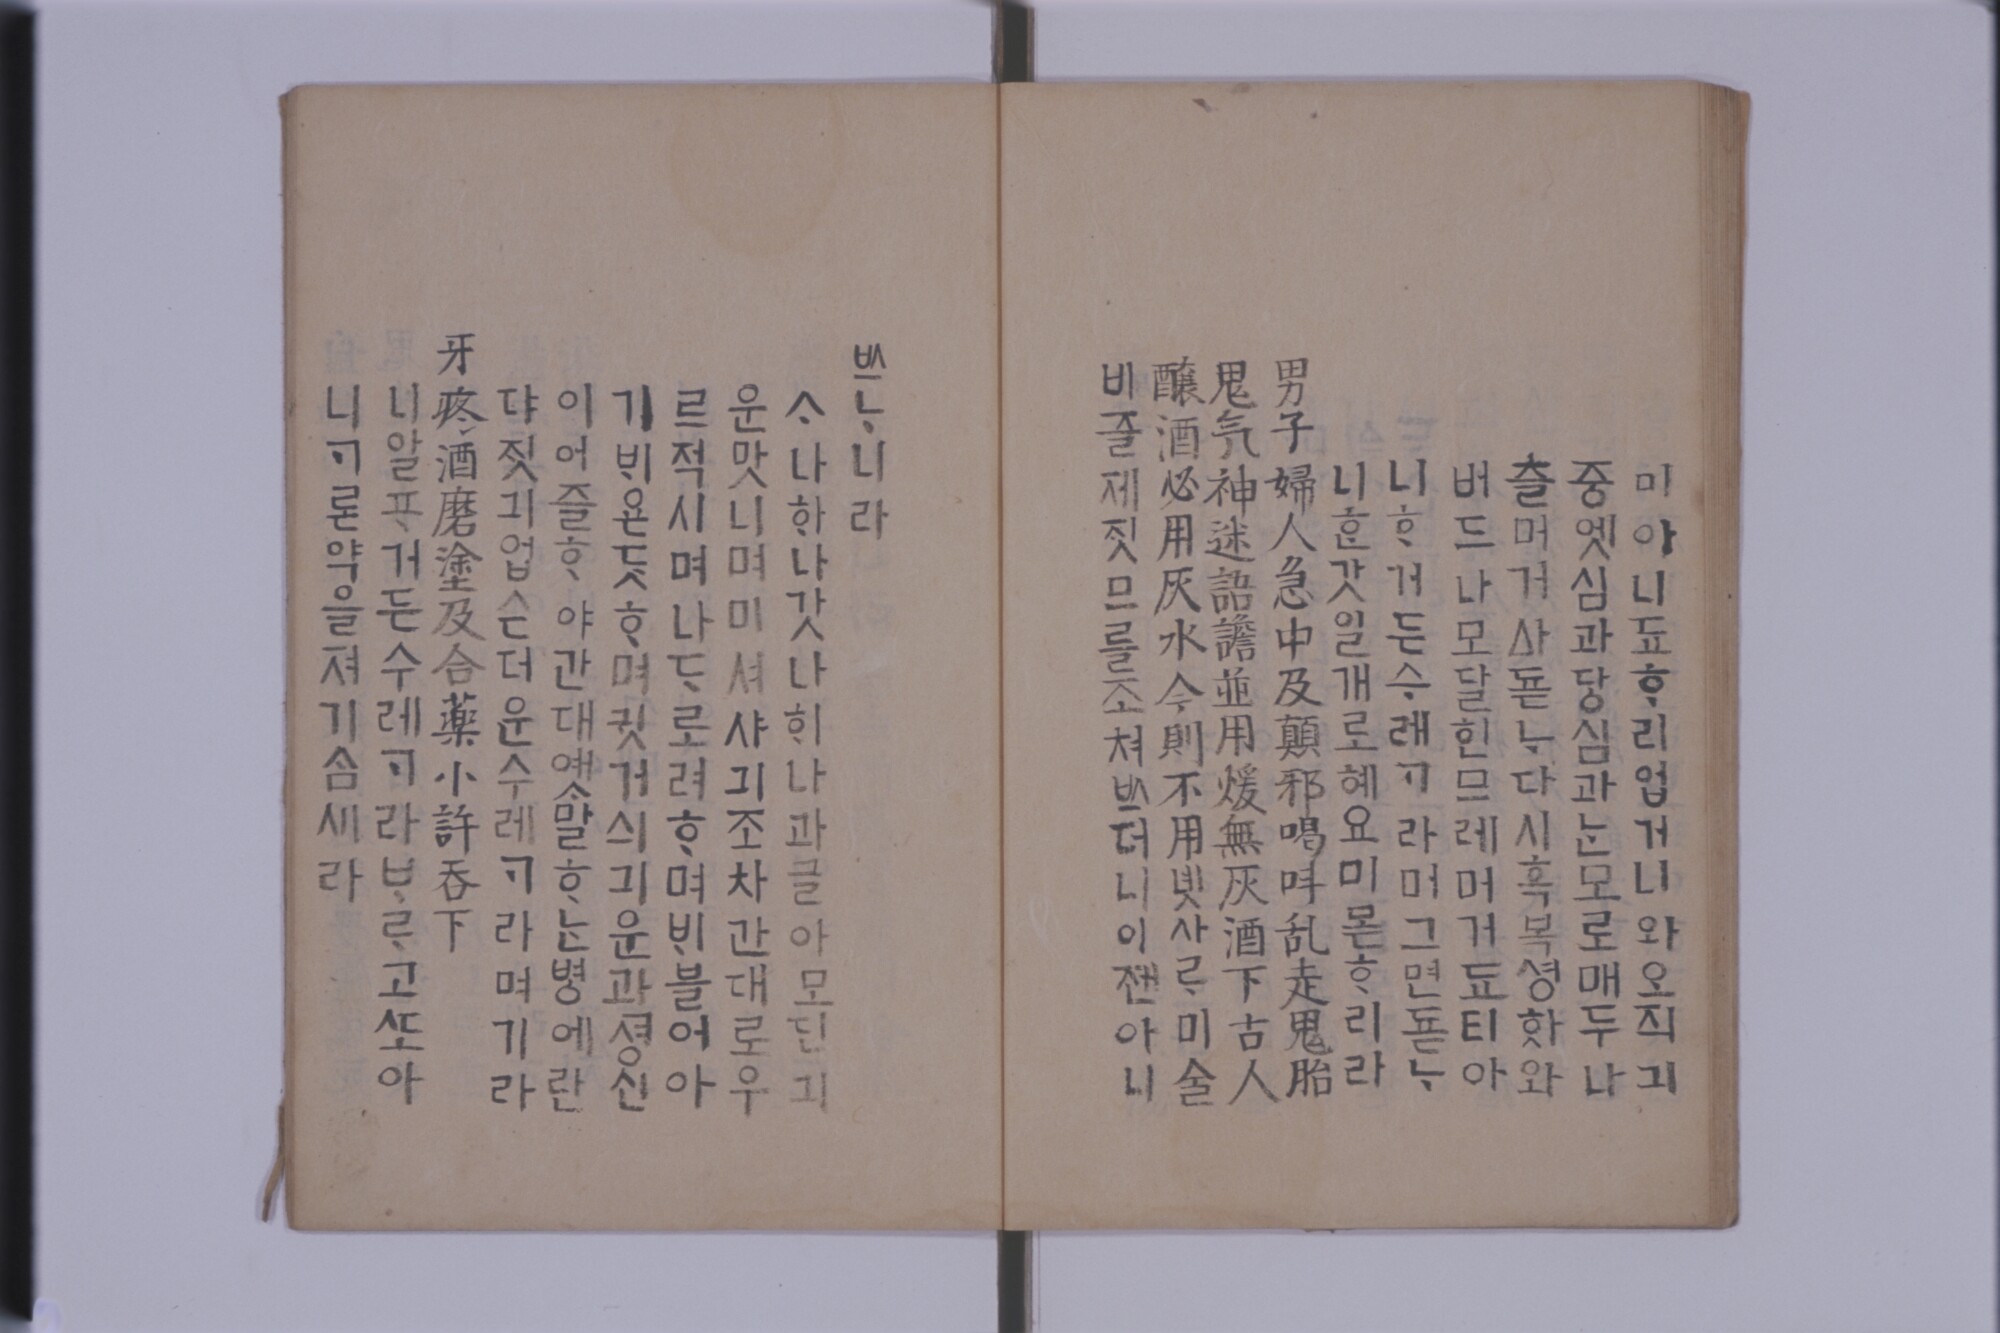 미아니됴ᄒᆞ리업거니와오직긔
중엣심과당심과ᄂᆞᆫ모로매두나
츨머거ᅀᅡ됻ᄂᆞ다시혹복셩홧와
버드나모달힌므레머거됴티아
니ᄒᆞ거든수레ᄀᆞ라머그면됻ᄂᆞ
니ᄒᆞᆫ갓일개로혜요미몯ᄒᆞ리라
男子婦人急中及顛邪喝呌乱走鬼胎
鬼气神迷語譫並用煖無灰酒下古人
釀酒必用灰水今則不用녯사ᄅᆞ미술
비즐제짓므를조쳐ᄡᅳ더니이젠아니
ᄡᅳᄂᆞ니라
ᄉᆞ나ᄒᆡ나갓나ᄒᆡ나과글아모딘긔
운맛니며미셔샤긔조차간대로우
르적시며나ᄃᆞ로려ᄒᆞ며ᄇᆡ블어아
기ᄇᆡ욘ᄃᆞᆺᄒᆞ며귓거싀긔운과셩신
이어즐ᄒᆞ야간대옛말ᄒᆞᄂᆞᆫ병에란
댜짓긔업슨더운수레ᄀᆞ라며기라
牙疼酒磨塗及合藥小許吞下
니알ᄑᆞ거든수레ᄀᆞ라ᄇᆞᄅᆞ고ᄯᅩ아
니ᄀᆞ론약을져기ᄉᆞᆷ셰라